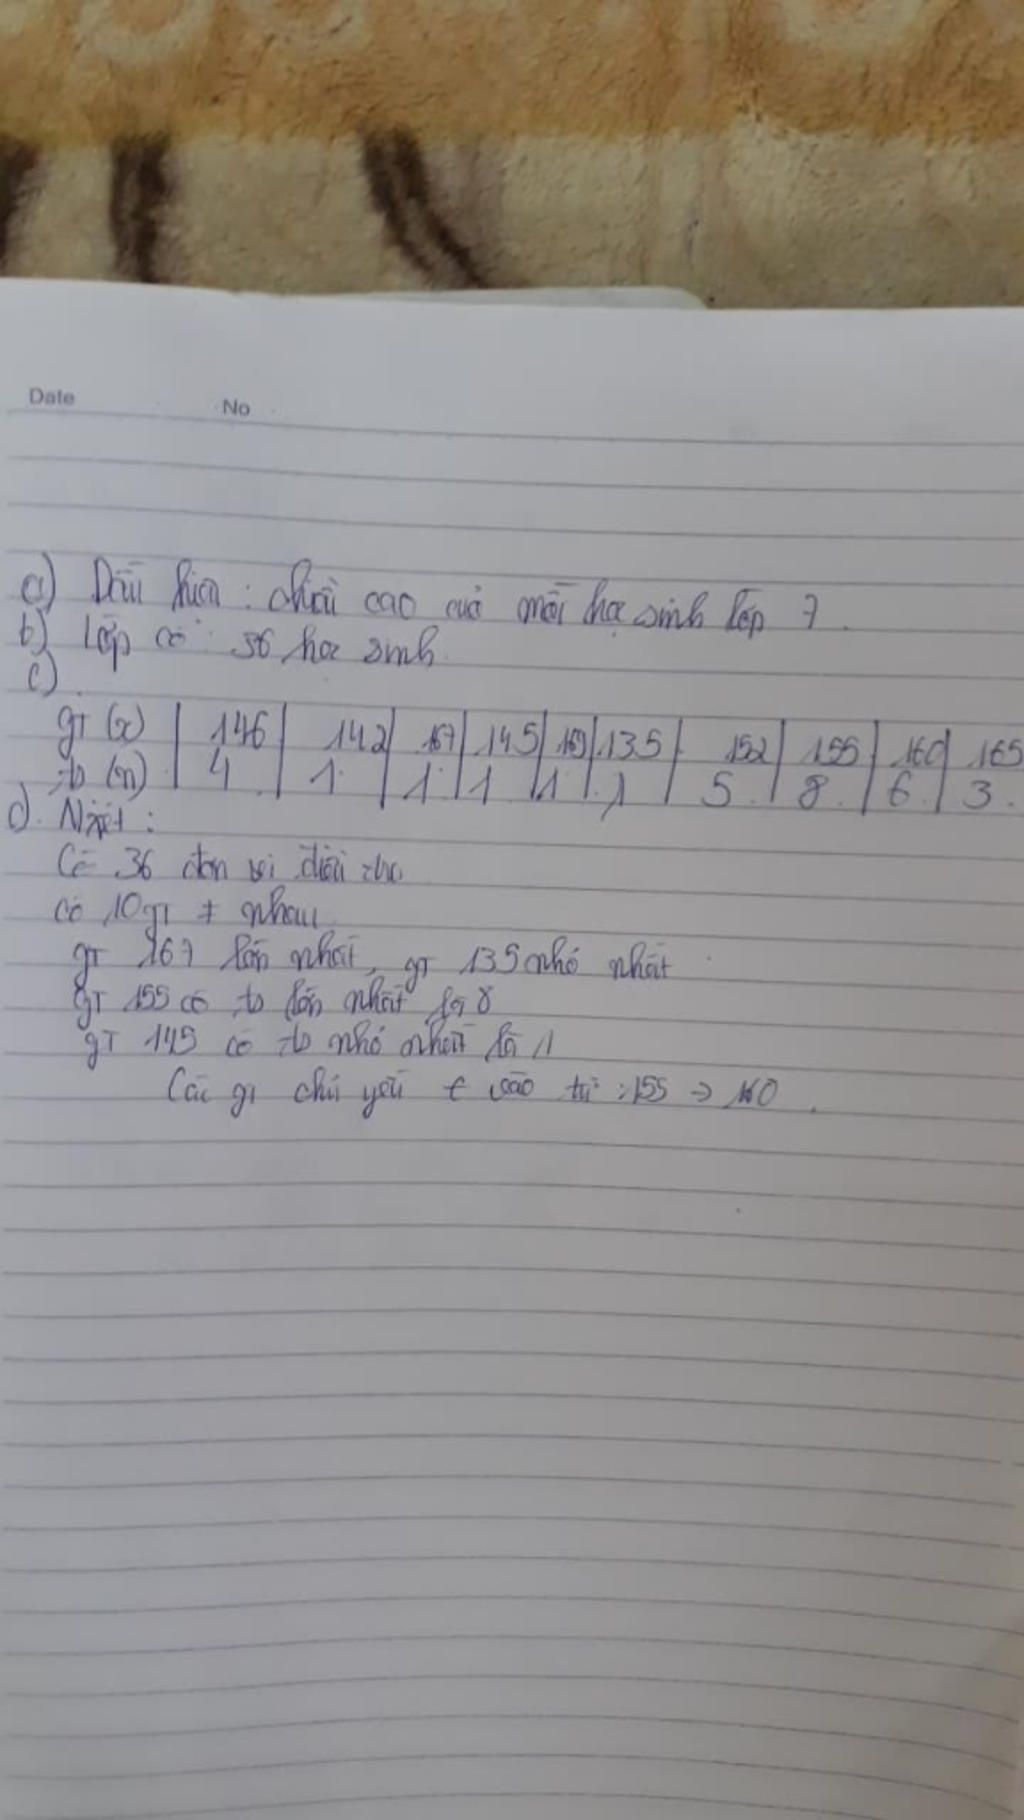 Date No
a) Dấu hiệu : chiều cao của mỗi học sinh lớp 7.
b) Lớp có : 36 học sinh.
c)
gT (x) | 146 | 142 | 167 | 145 | 169 | 135 | 152 | 155 | 160 | 165
ts (n) | 4 | 1 | 1 | 1 | 1 | 1 | 5 | 8 | 6 | 3
d). Nxét :
Có 36 đơn vị điều tra
Có 10 gT ≠ nhau
gT 167 lớn nhất, gT 135 nhỏ nhất
gT 155 có ts lớn nhất là 8
gT 145 có ts nhỏ nhất là 1
Các gT chủ yếu € vào từ : 155 → 160.